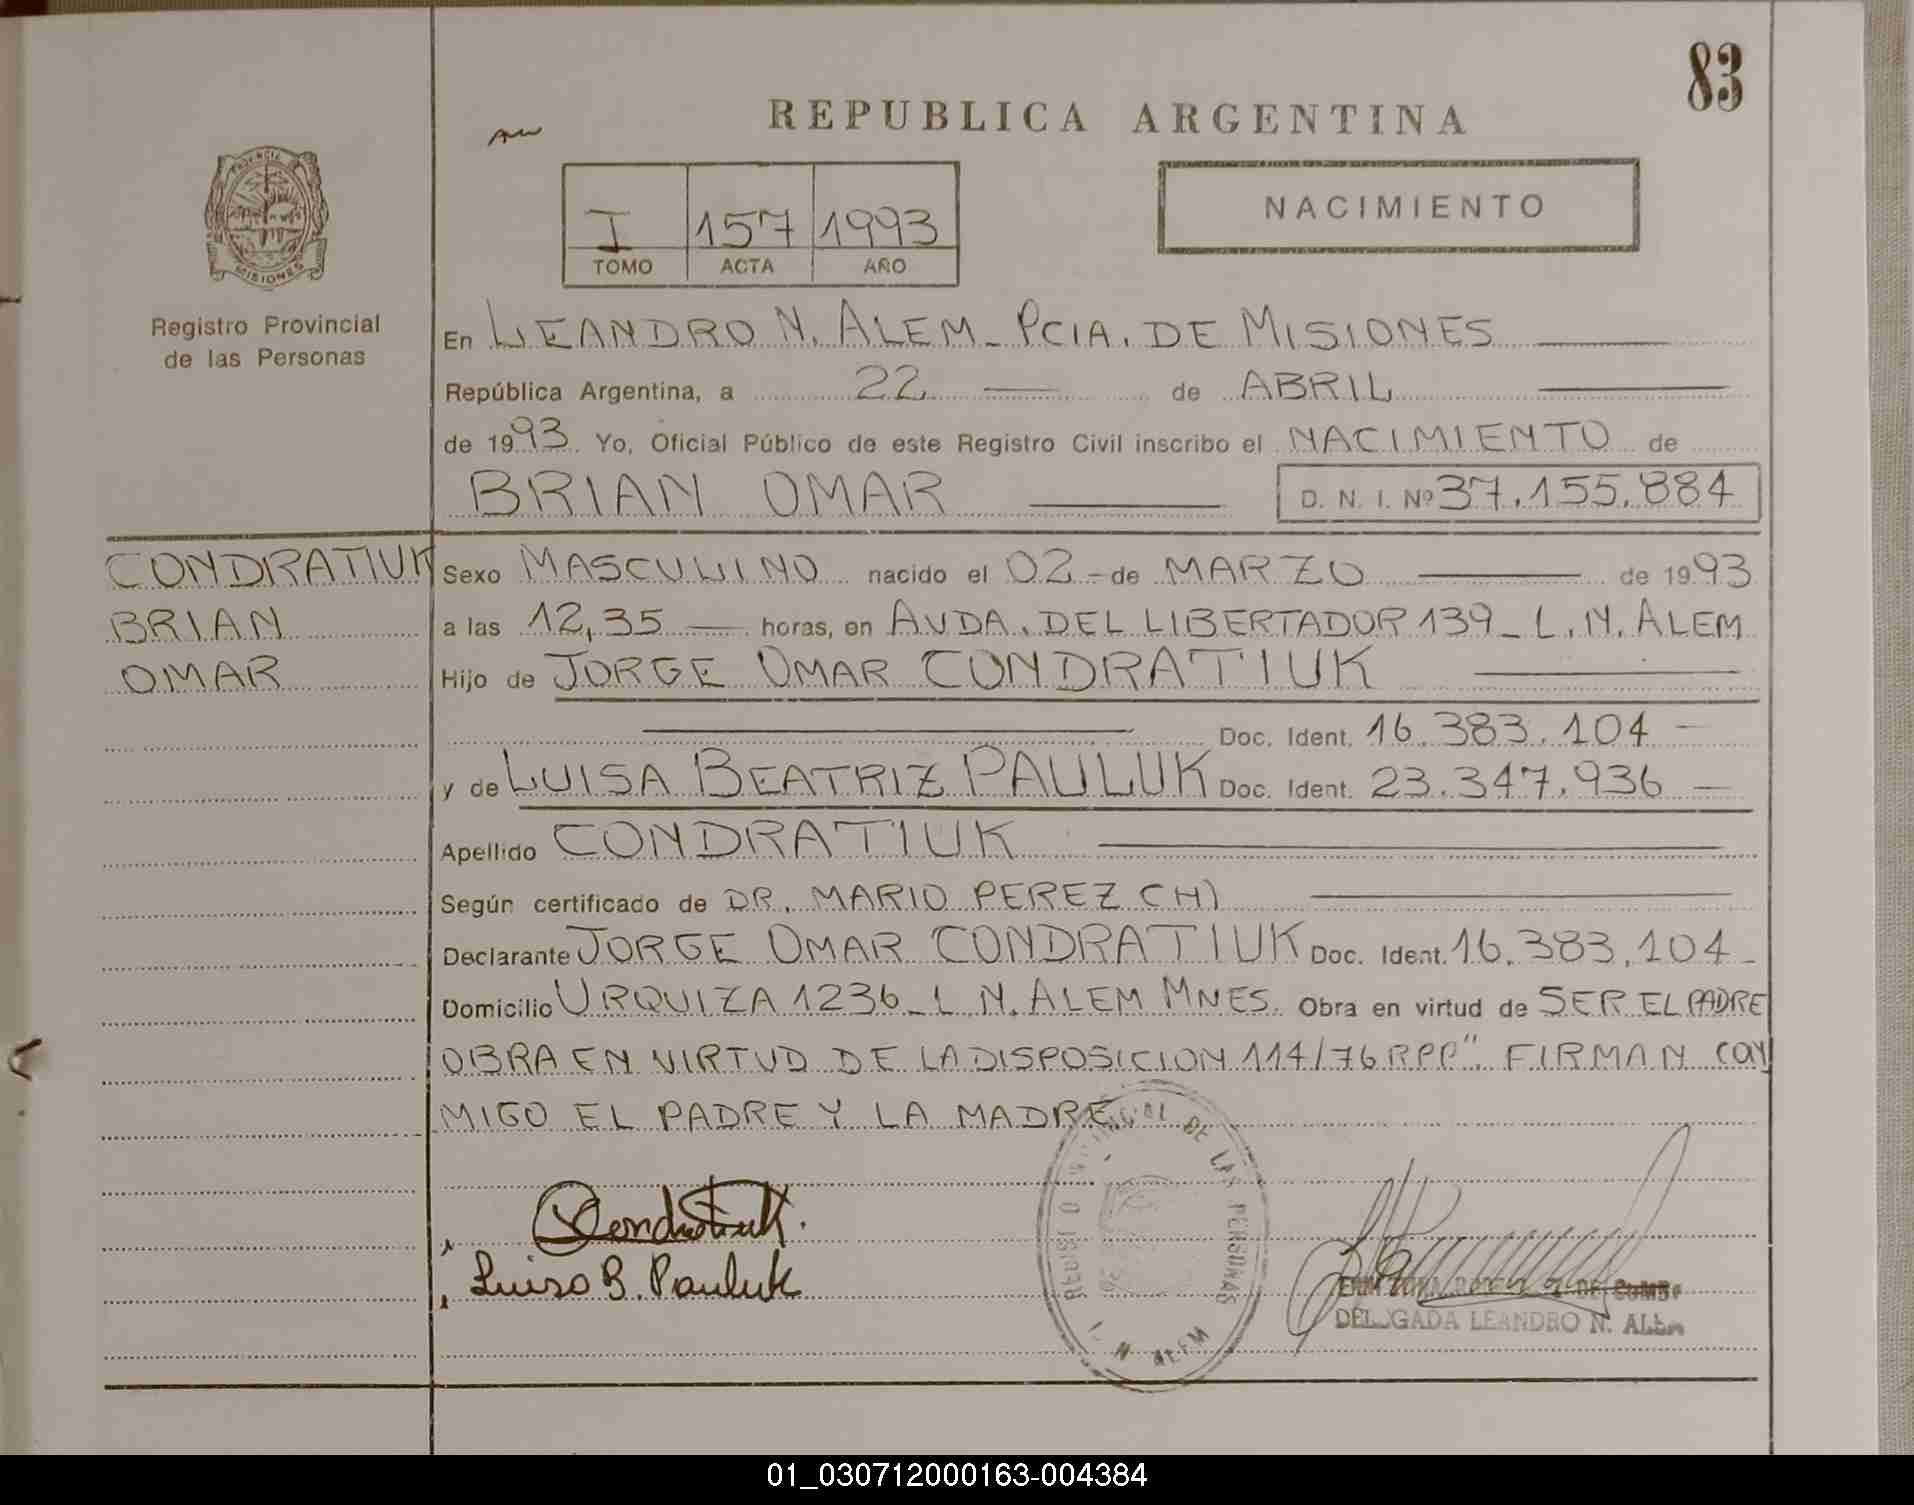 83
REPUBLICA ARGENTINA
PROVINCIA
MISIONES
Registro Provincial
de las Personas
I 157 1993
TOMO ACTA AÑO
NACIMIENTO
En LEANDRO N. ALEM - PCIA. DE MISIONES
República Argentina, a 22 de ABRIL
de 1993. Yo, Oficial Público de este Registro Civil inscribo el NACIMIENTO de
BRIAN OMAR D. N. I. Nº 37.155.884
CONDRATIUK
BRIAN
OMAR
Sexo MASCULINO nacido el 02 - de MARZO de 1993
a las 12,35 horas, en AVDA. DEL LIBERTADOR 139 - L. N. ALEM
Hijo de JORGE OMAR CONDRATIUK
Doc. Ident. 16.383.104 -
y de LUISA BEATRIZ PAULUK Doc. Ident. 23.347.936 -
Apellido CONDRATIUK
Según certificado de DR. MARIO PEREZ (H)
Declarante JORGE OMAR CONDRATIUK Doc. Ident. 16.383.104 -
Domicilio URQUIZA 1236 - L. N. ALEM MNES. Obra en virtud de SER EL PADRE
OBRA EN VIRTUD DE LA DISPOSICION 114/76 RPP". FIRMAN CON
MIGO EL PADRE Y LA MADRE.
Condratiuk.
Luisa B. Pauluk
DE LAS PERSONAS
N ALEM
DELEGADA LEANDRO N. ALEM
01_030712000163-004384